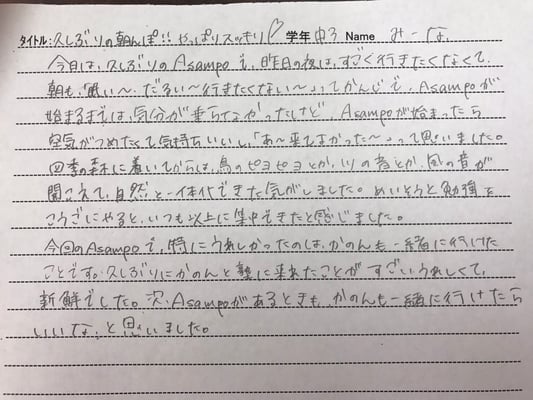 タイトル:久しぶりの朝んぽ!! やっぱりスッキリ♡ 学年 中3 Name みーな。
今日は、久しぶりのAsampoで、昨日の夜は、すごく行きたくなくて、
朝も、「眠い〜、だるい〜行きたくない〜」ってかんじで、Asampoが
始まるまでは、気分が乗らなかったけど、Asampoが始まったら
空気がつめたくて気持ちいいし、「あ〜来てよかった〜」って思いました。
四季の森に着いてからは、鳥のピヨピヨとか、川の音とか、風の音が
聞こえて、自然と一体化できた気がしました。めいそうと勉強を
こうごにやると、いつも以上に集中できたと感じました。
今回のAsampoで、特にうれしかったのは、かのんも一緒に行けた
ことです。久しぶりにかのんと塾に来れたことがすごいうれしくて、
新鮮でした。次、Asampoがあるときも、かのんも一緒に行けたら
いいな、と思いました。